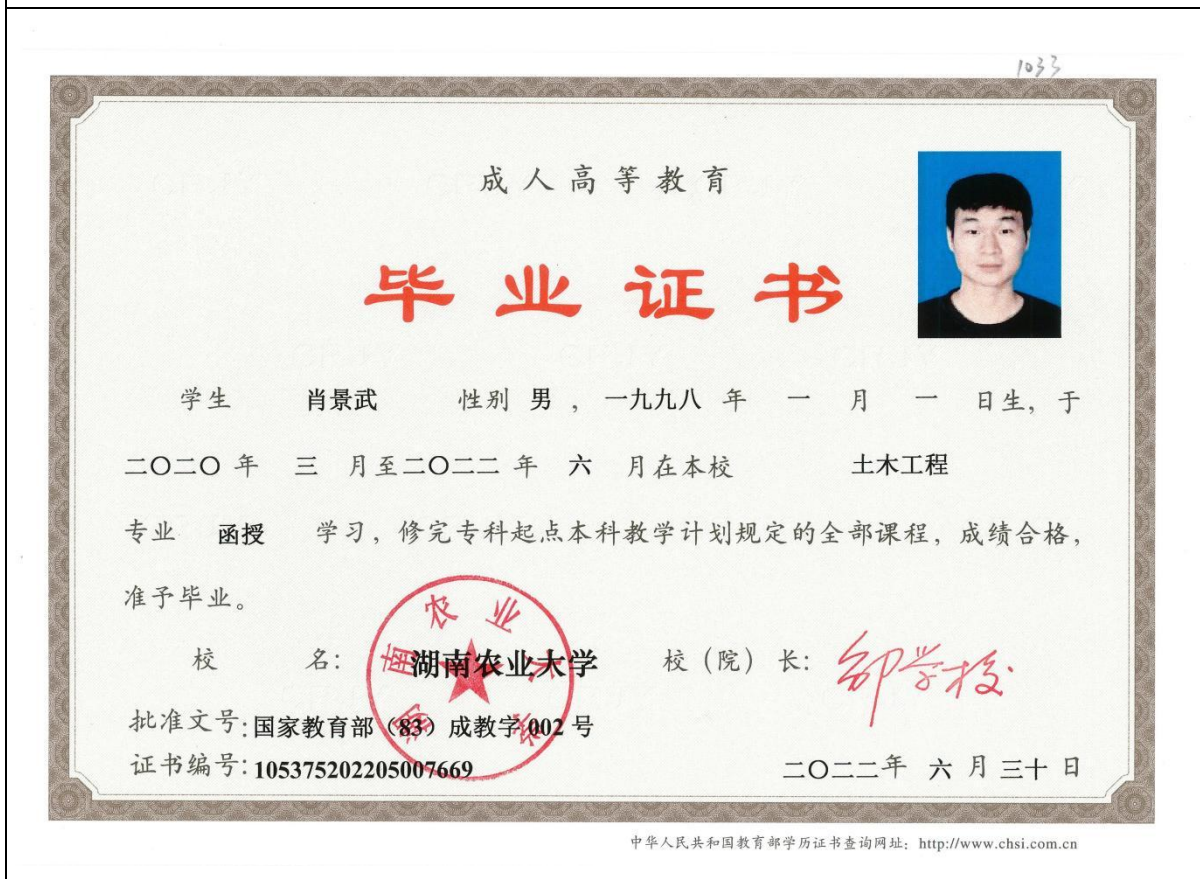 1033
成人高等教育
毕业证书
学生 肖景武 性别 男 ，一九九八 年 一 月 一 日生，于
二〇二〇 年 三 月至二〇二二 年 六 月在本校 土木工程
专业 函授 学习，修完专科起点本科教学计划规定的全部课程，成绩合格，
准予毕业。
校 名：湖南农业大学 校（院）长：邹学校
湖南农业大学
批准文号:国家教育部（83）成教字 002 号
证书编号:105375202205007669 二〇二二年 六 月 三十 日
中华人民共和国教育部学历证书查询网址：http://www.chsi.com.cn